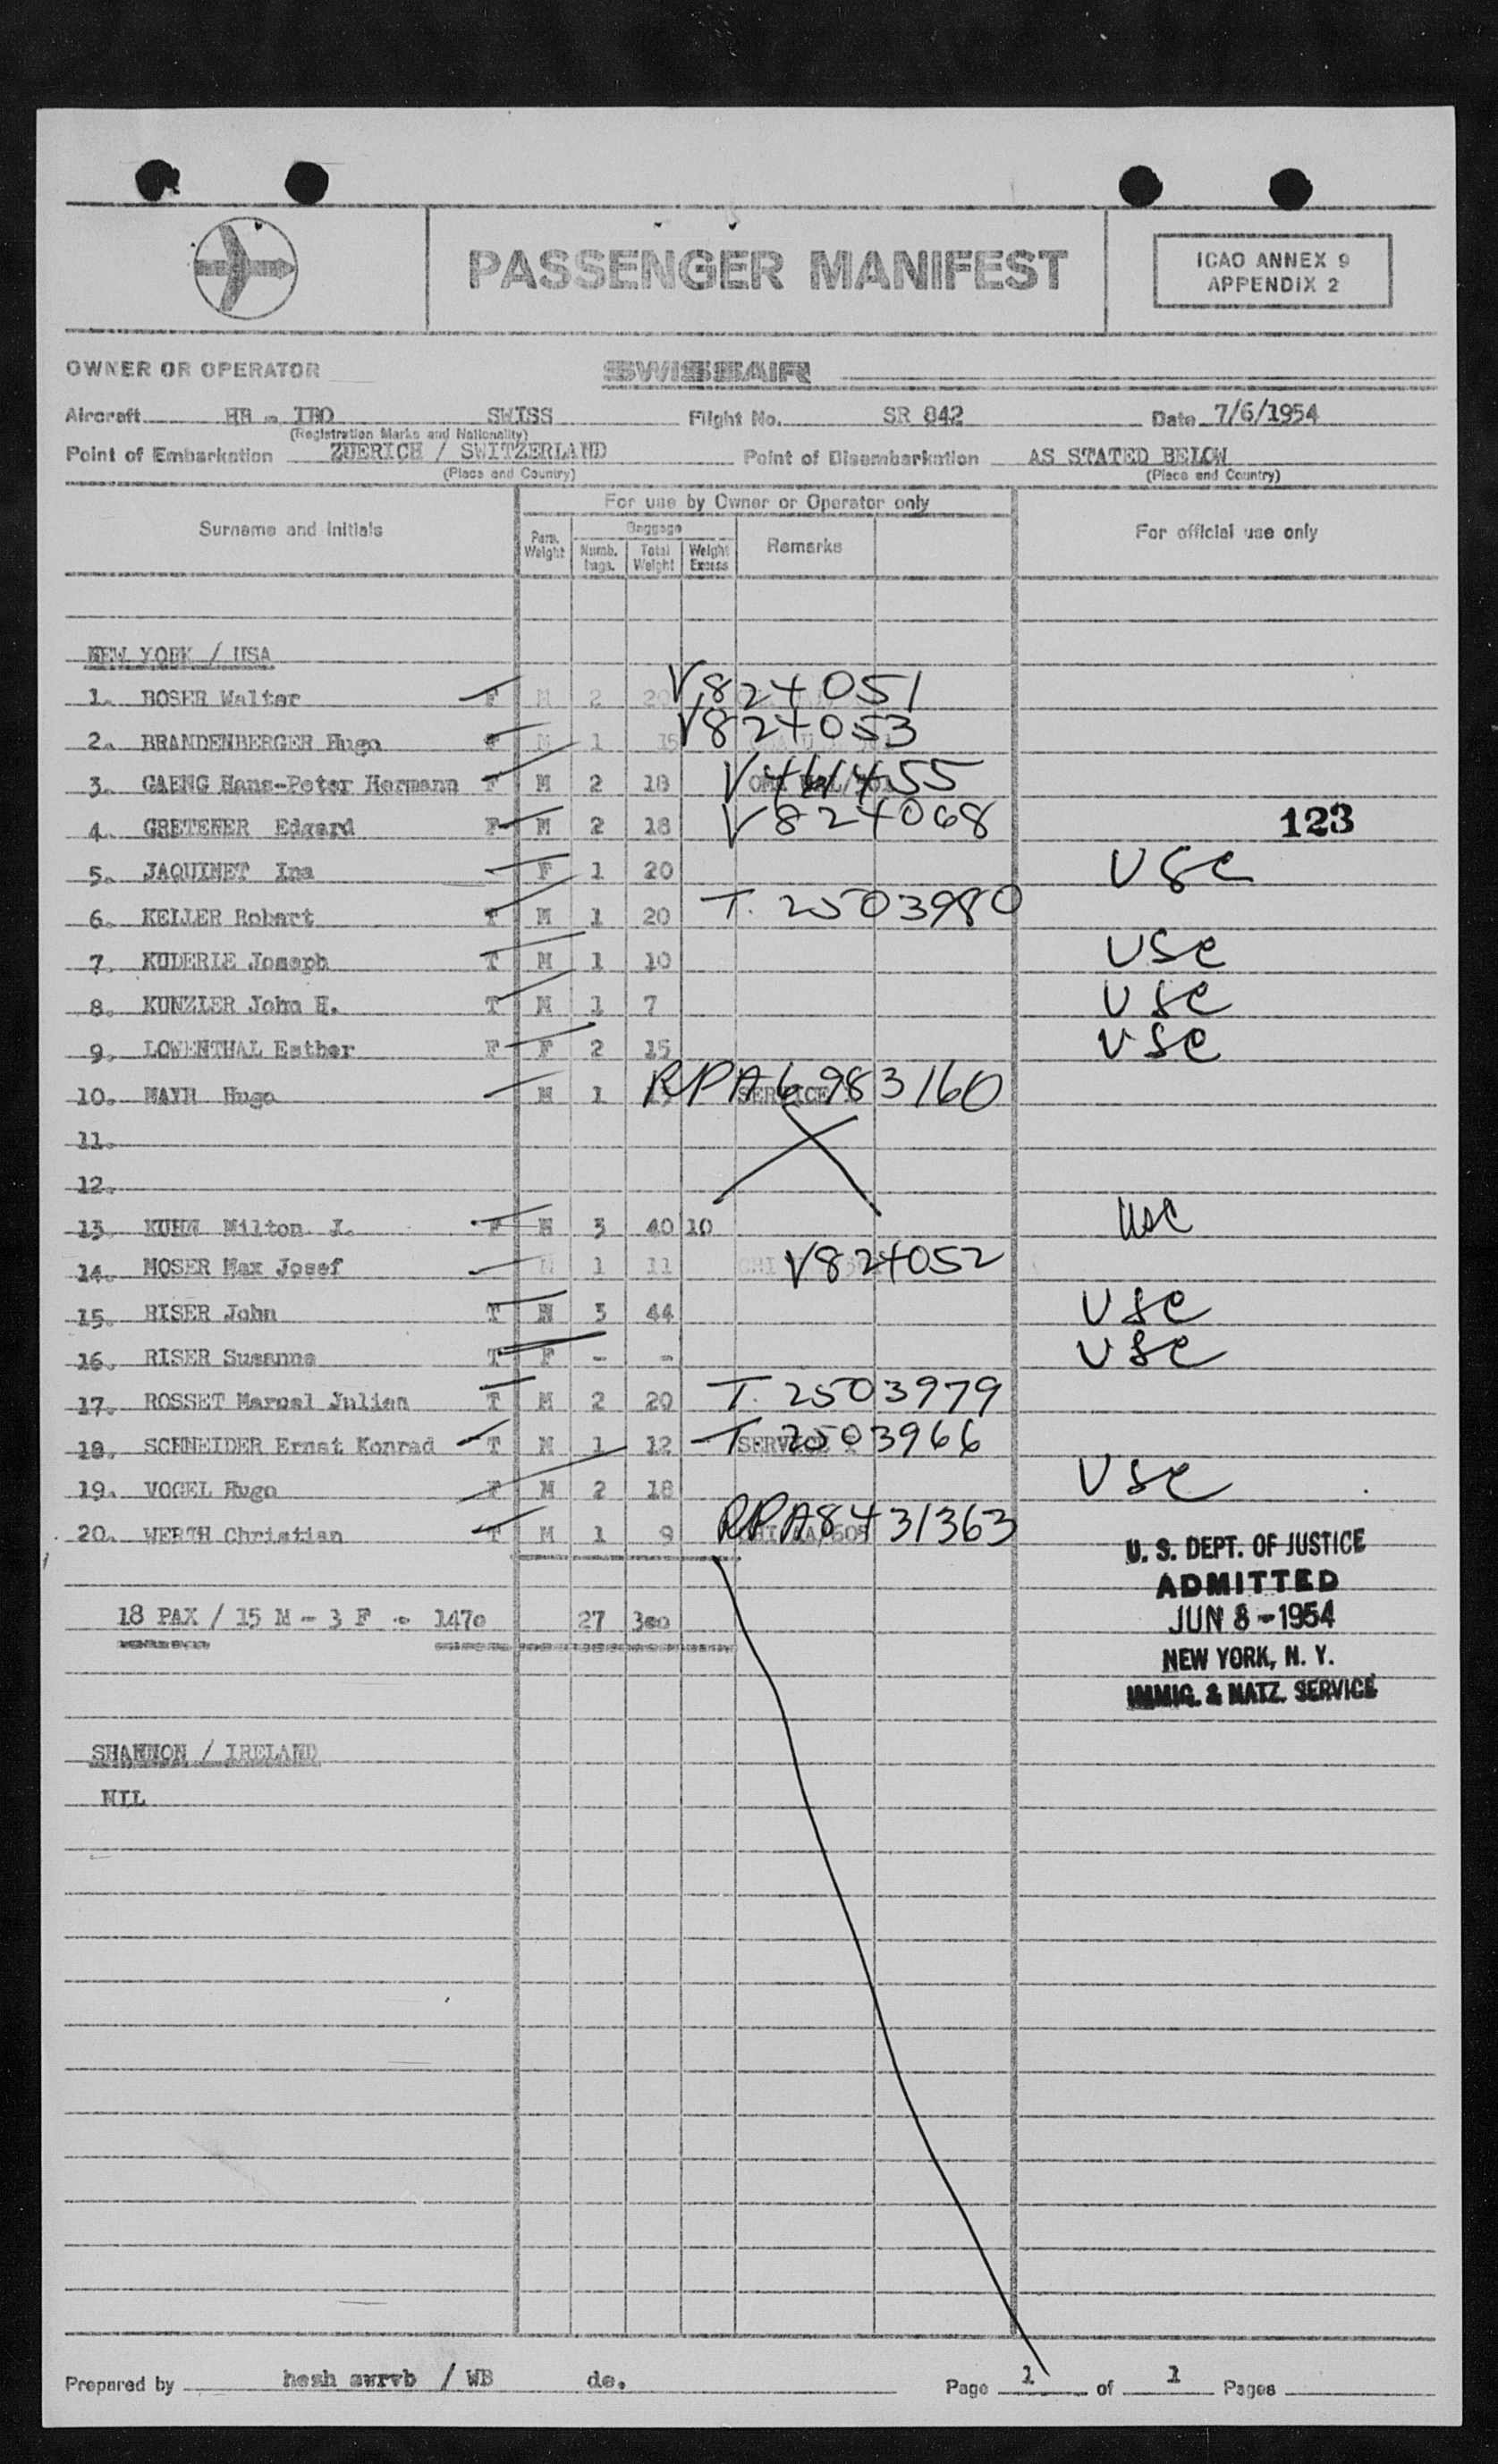 PASSENGER MANIFEST
ICAO ANNEX 9
APPENDIX 2
OWNER OR OPERATOR SWISSAIR
Aircraft HB - IBO SWISS Flight No. SR 842 Date 7/6/1954
(Registration Marks and Nationality)
Point of Embarkation ZUERICH / SWITZERLAND Point of Disembarkation AS STATED BELOW
(Place and Country) (Place and Country)
For use by Owner or Operator only
Surname and Initials Pers. Weight Baggage Numb. bags. Total Weight Weight Excess Remarks For official use only
NEW YORK / USA
1. BOSER Walter F M 2 20 V824051
2. BRANDENBERGER Hugo F M 1 15 V824053
3. GAENG Hans-Peter Hermann F M 2 18 1455
4. GRETENER Edgard F M 2 18 V824068 123
5. JAQUINET Ina F 1 20 USC
6. KELLER Robert T M 1 20 T. 2503980
7. KUDERLE Joseph T M 1 10 USC
8. KUNZLER John H. T M 1 7 USC
9. LOWENTHAL Esther F F 2 15 USC
10. MAYR Hugo M 1 SERVICE RPA6983160
11.
12.
13. KUHN Milton J. F M 3 40 10 USC
14. MOSER Max Josef M 1 11 V824052
15. RISER John T M 3 44 USC
16. RISER Susanne T F - - USC
17. ROSSET Marcel Julien T M 2 20 T. 2503979
18. SCHNEIDER Ernst Konrad T M 1 12 SERVICE T. 2503966
19. VOGEL Hugo F M 2 18 USC
20. WERTH Christian T M 1 9 RPA8431363
U. S. DEPT. OF JUSTICE
ADMITTED
18 PAX / 15 M - 3 F - 27 JUN 8 - 1954
NEW YORK, N. Y.
IMMIG. & NATZ. SERVICE
SHANNON / IRELAND
NIL
Prepared by hesh swrvb / WB de. Page 1 of 1 Pages